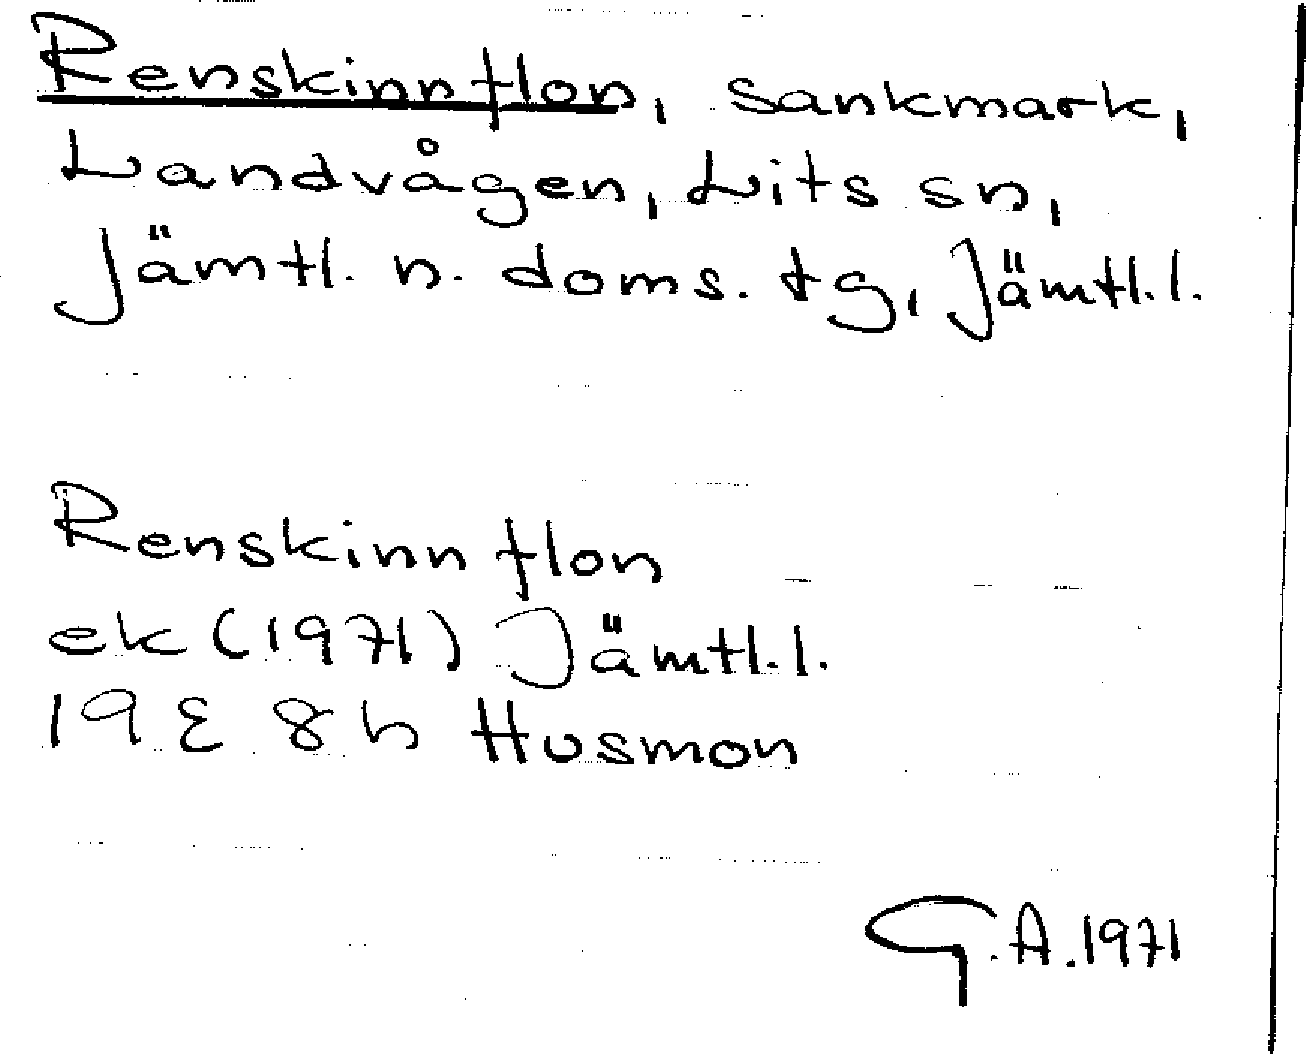 Renskinnflon, sankmark,
Landvågen, Lits sn,
Jämtl. n. doms. tg, Jämtl.l.
Renskinnflon
ek (1971) Jämtl.l.
19E 8h Husmon
G.A.1971